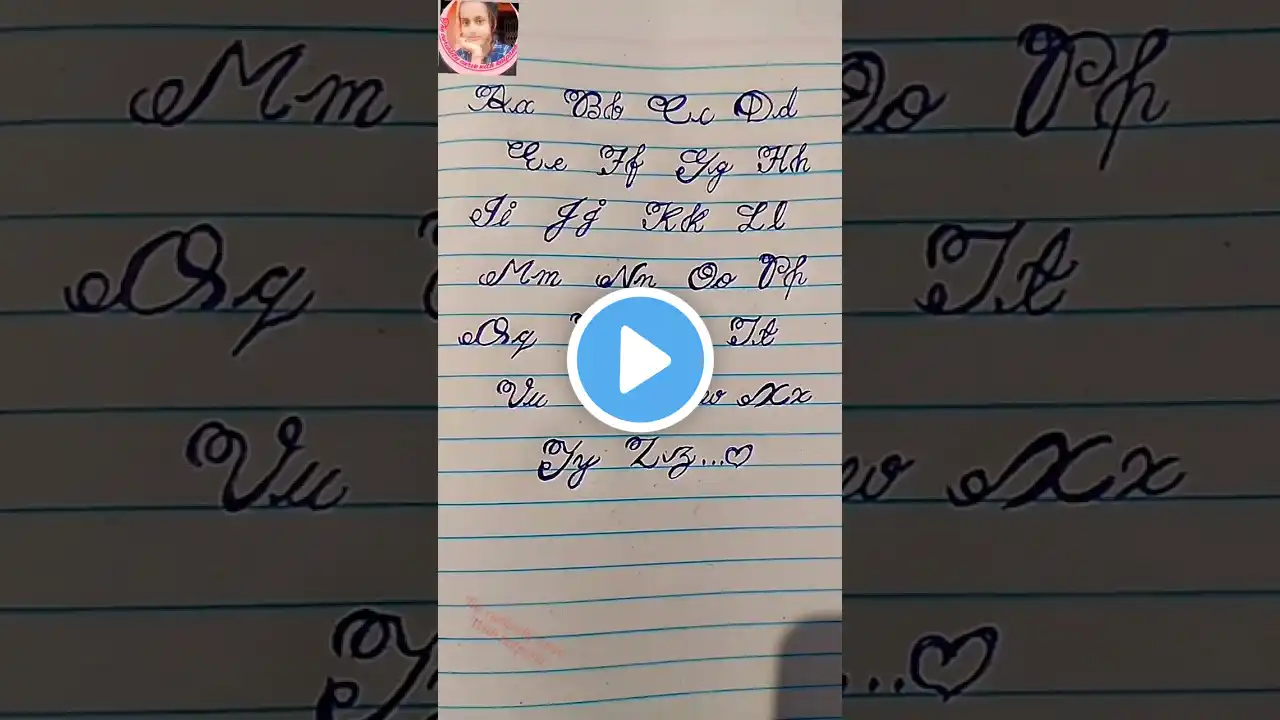 Aa Bb Cc Dd
Ee Ff Gg Hh
Ii Jj Kk Ll
Mm Nn Oo Pp
Qq Tt
Uu w Xx
Yy Zz...♡